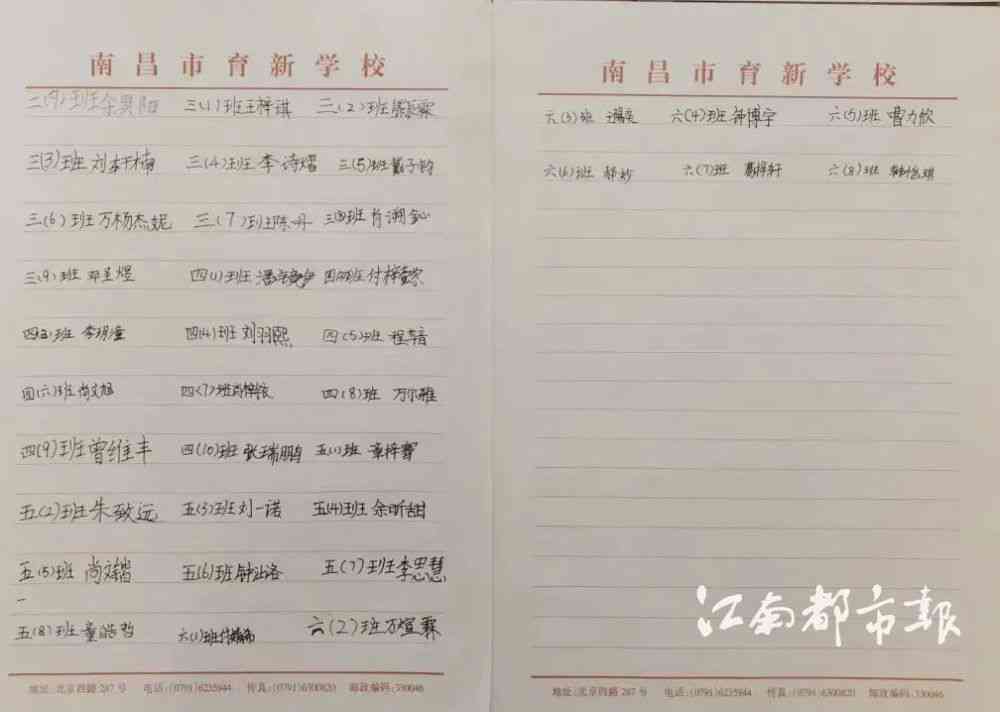 南昌市育新学校
二(9)班 余昊阳 三(1)班 王梓琪 三(2)班
三(3)班 刘轩楠 三(4)班 李诗熠 三(5)班 戴子钧
三(6)班 万杨杰妮 三(7)班 陈丹 三(8)班 肖溯
三(9)班 邓呈煜 四(1)班 四(2)班 付梓
四(3)班 李玥潼 四(4)班 刘羽熙 四(5)班 程音
四(六)班 尚文旭 四(7)班 四(8)班 万尔雅
四(9)班 曾维丰 四(10)班 张瑞鹏 五(1)班 章梓
五(2)班 朱致远 五(3)班 刘一诺 五(4)班 余昕甜
五(5)班 尚文楷 五(6)班 钟沁洛 五(7)班 李思慧
五(8)班 童皓哲 六(1)班 六(2)班 万煊霖
地址:北京西路287号 电话:(0791)6235944 传真:(0791)6300820 邮政编码:330046
南昌市育新学校
六(3)班 六(4)班 钟博宇 六(5)班 曹力歆
六(6)班 郝妙 六(7)班 葛梓轩 六(8)班
江南都市報
地址:北京西路287号 电话:(0791)6235944 传真:(0791)6300820 邮政编码:330046